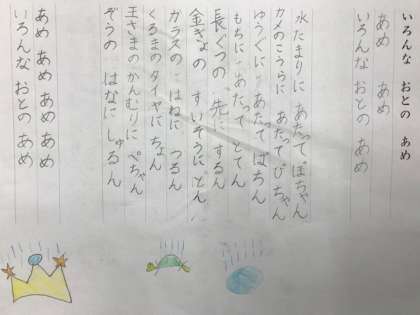 いろんな おとの あめ
あめ あめ
いろんな おとの あめ
水たまりに あたって ぽちゃん
カメのこうらに あたって ぴちゃん
ゆうぐに あたって ばちん
もちに あたって とてん
長ぐつの 先に するん
金ぎょの すいそうに どん
ガラスの はねに つるん
くるまの タイヤに ちょん
王さまの かんむりに ぺちゃん
ぞうの はなに しゅるん
あめ あめ あめ あめ
いろんな おとの あめ